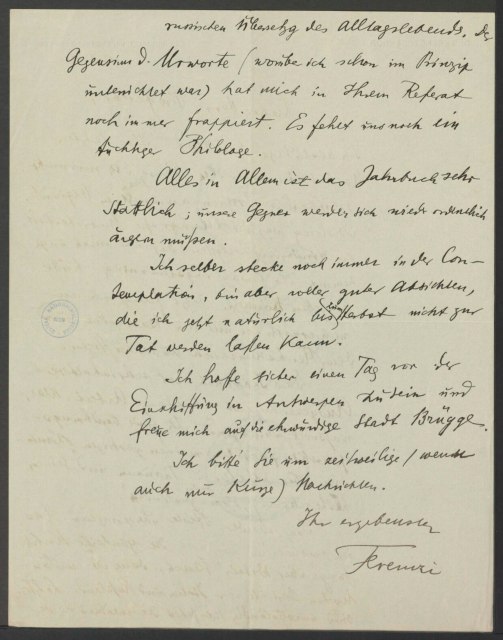 russischen Übersetzg des Alltagslebens. Der
Gegensinn d. Urworte (worüber ich schon im Prinzip
unterrichtet war) hat mich in Ihrem Referat
noch immer frappiert. Es fehlt uns noch ein
tüchtiger Philologe.
Alles in Allem ist das Jahrbuch sehr
stattlich; unsere Gegner werden sich wieder ordentlich
ärgern müssen.
Ich selber stecke noch immer in der Con-
templation, bin aber voller guter Absichten,
die ich jetzt natürlich bis zum Herbst nicht zur
Tat werden lassen kann.
Ich hoffe sicher einen Tag vor der
Einschiffung in Antwerpen zu sein und
freue mich auf die ehrwürdige Stadt Brügge.
Ich bitte Sie um zeitweilige (wenn
auch nur kurze) Nachrichten.
Ihr ergebenster
Ferenczi